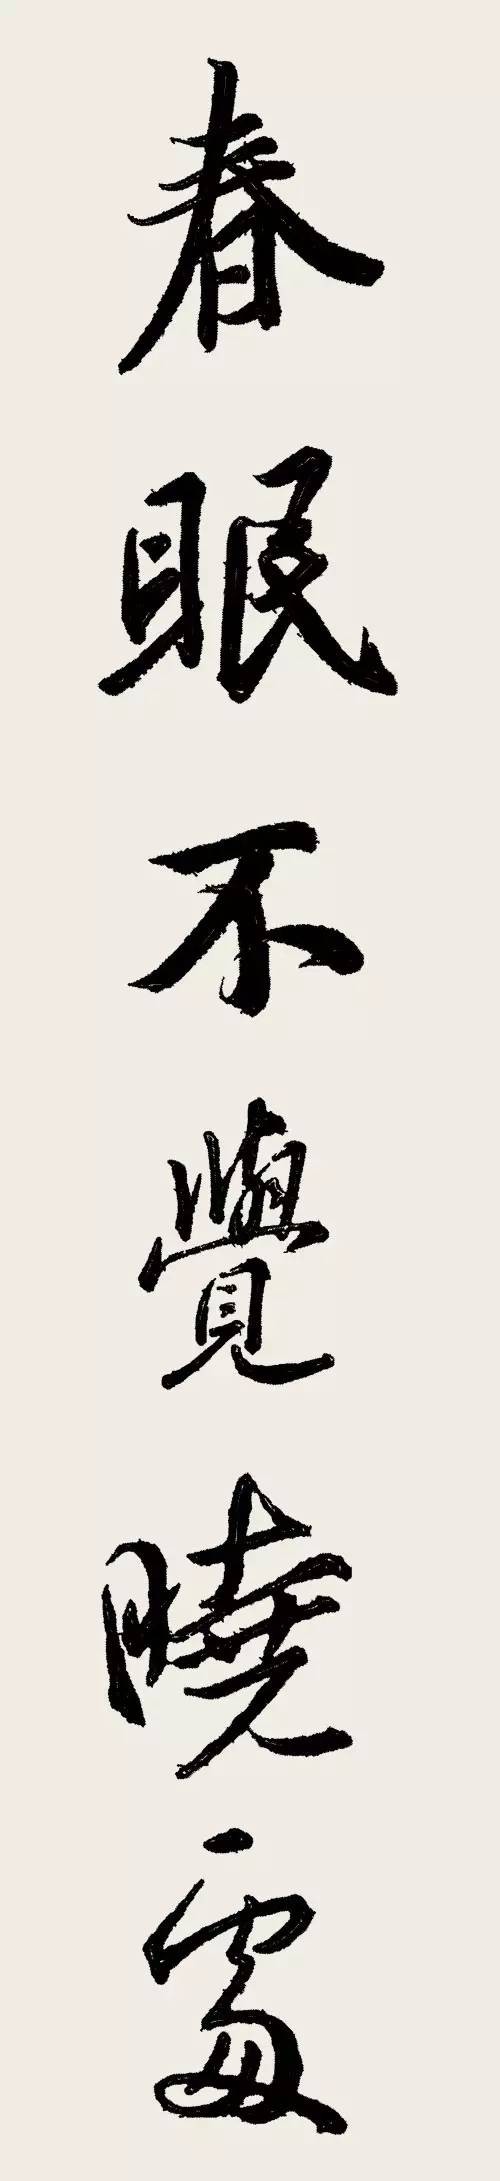 春眠不覺曉處